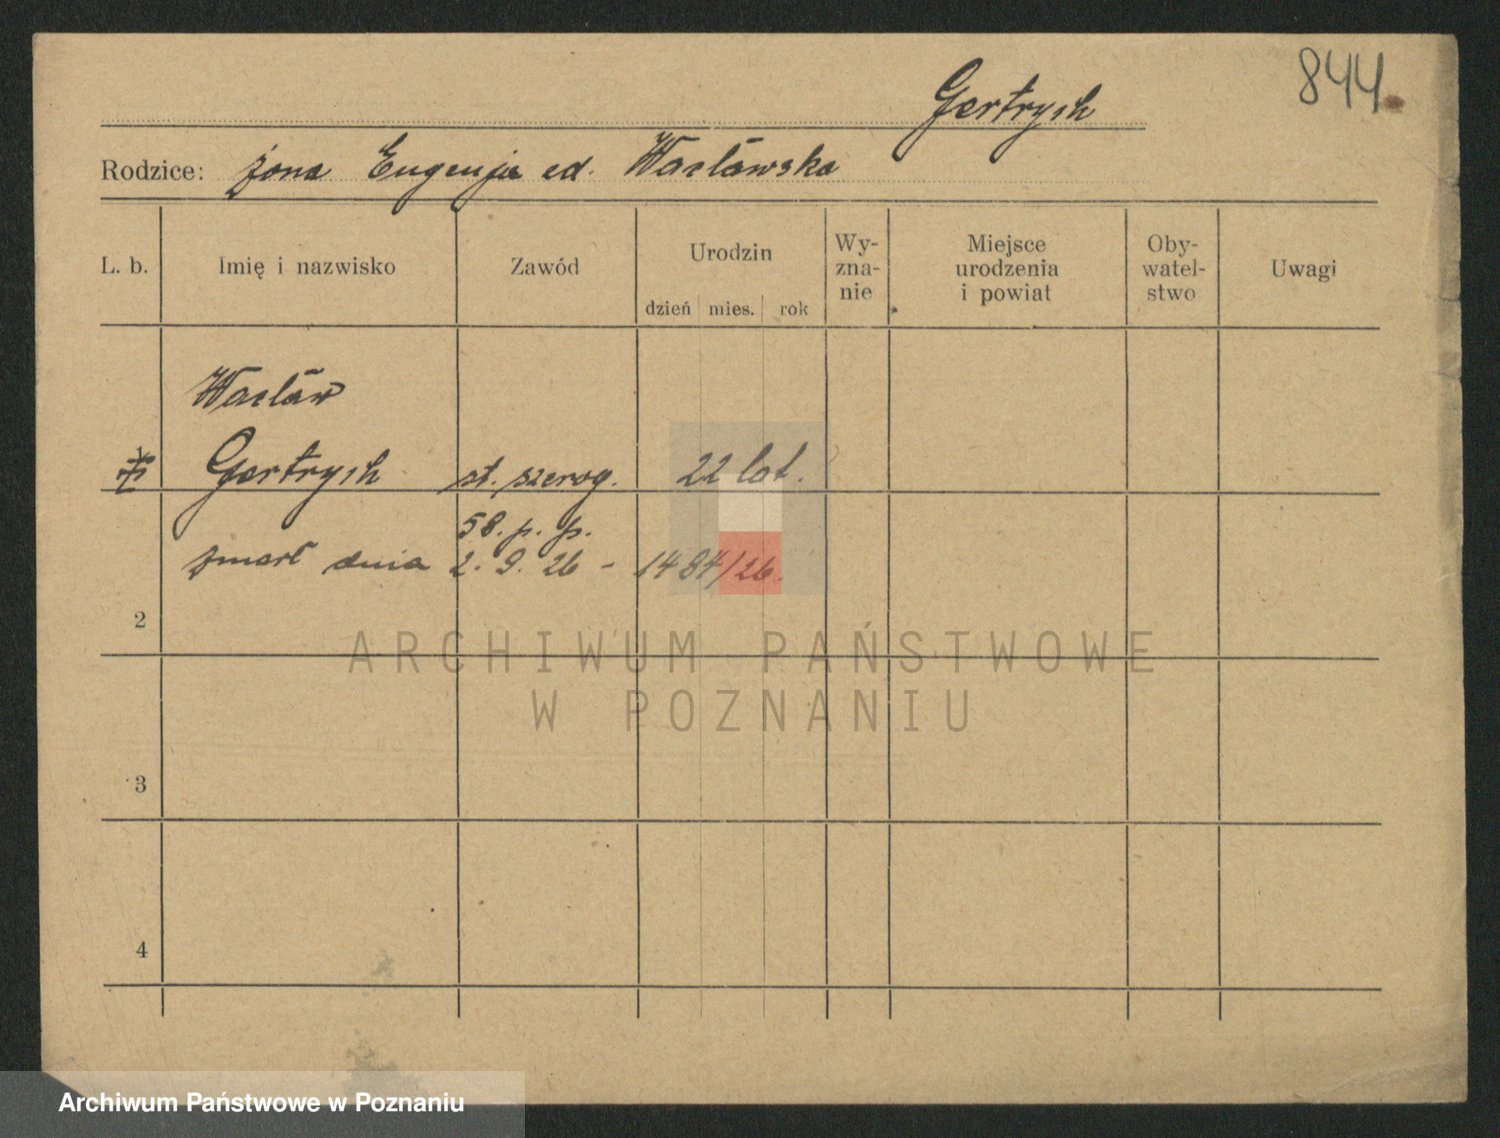 844
Gertrych
Rodzice: żona Eugenja ed. Wacławska
L. b.
Imię i nazwisko
Zawód
Urodzin
dzień mies. rok
Wy-
zna-
nie
Miejsce
urodzenia
i powiat
Oby-
watel-
stwo
Uwagi
Wacław
Gertrych st. szereg. 22 lat.
58. p. p.
zmarł dnia 2. 9. 26 - 1484/26.
2
3
4
ARCHIWUM PAŃSTWOWE
W POZNANIU
Archiwum Państwowe w Poznaniu